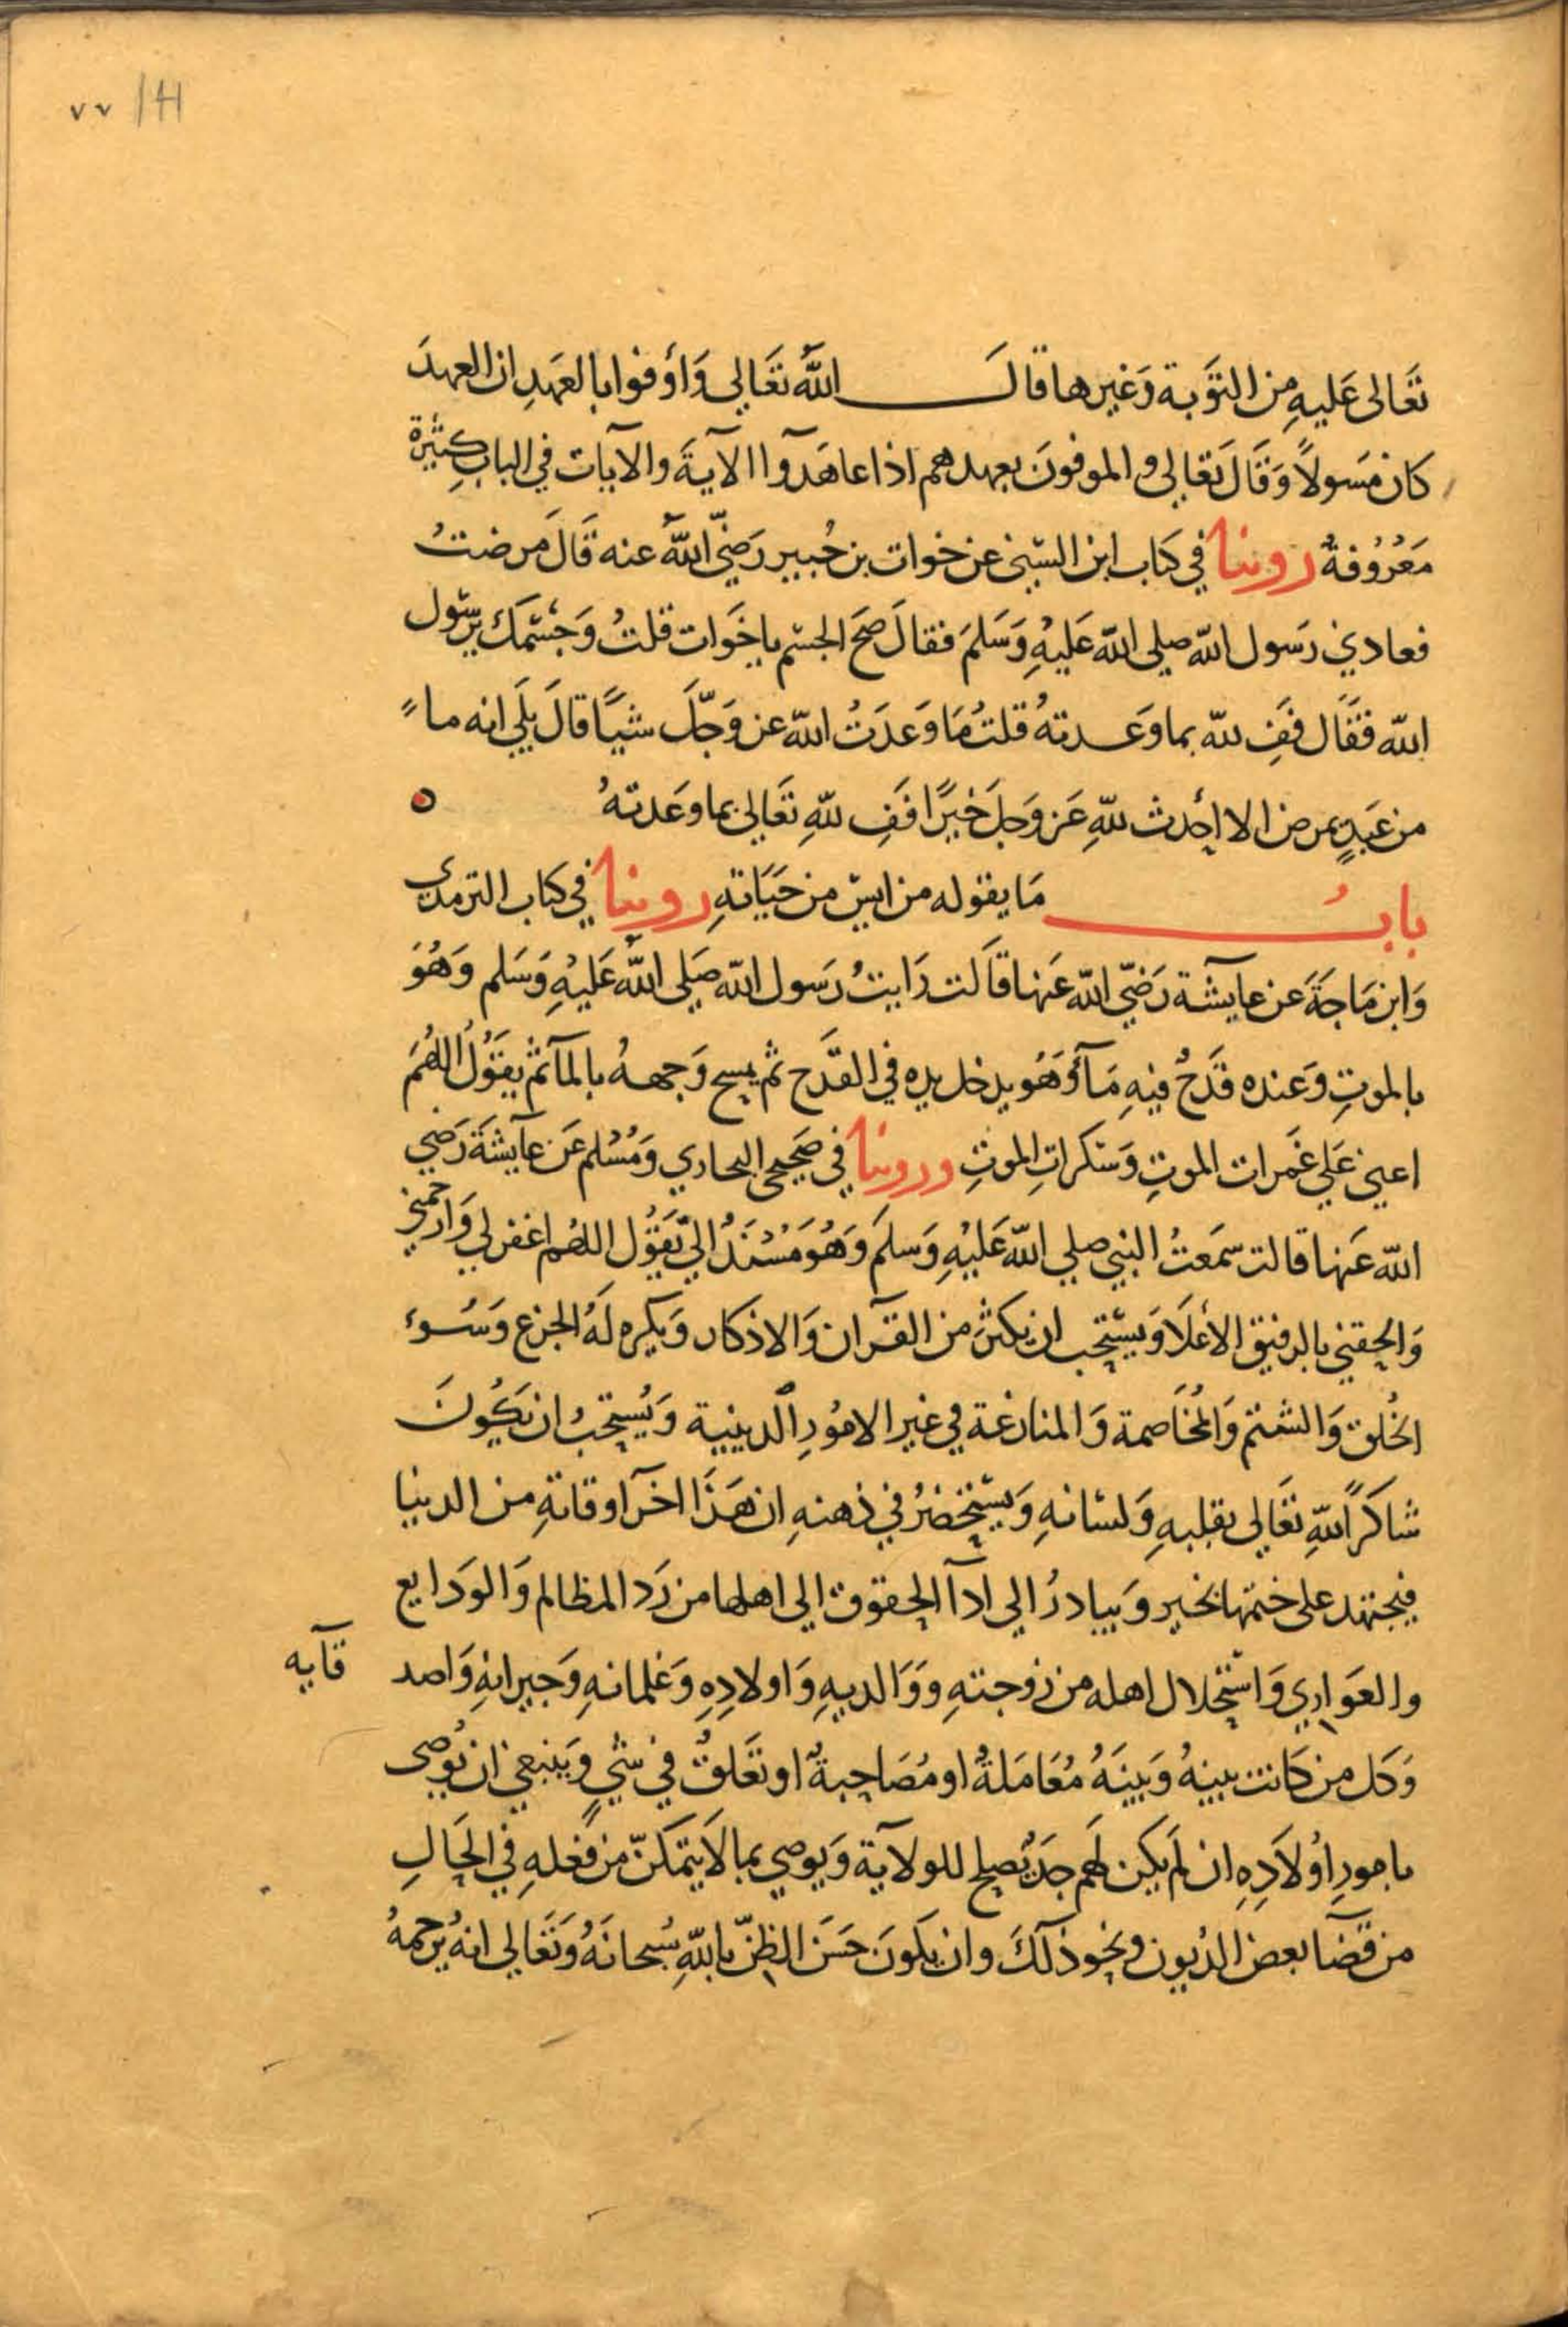 ٧٧ / 41
تَعَالى عَليهِ مِن التَوَبة وَغيرها قالَ اللهُ تعَالي وَأوفوا بالعَهدِ ان العهدَ
كان مَسَولاً وَقَالَ تعَالي والموفونَ بعهدهم اذا عاهَدَوا الآيةَ والآيات في البابِ كِثيَرة
مَعرُوُفةٌ روينا في كتاب ابن السّني عن خوات بن جُبيرٍ رَضيّ اللهُ عنه قَالَ مَرضتُ
فعادني رَسول الله صلى الله عَليهِ وَسَلمَ فقالَ صحَ الجسم يا خَوَات قلتُ وَجسْمَكَ يرسَول
الله فقَال فَفِ لله بما وَعدتهُ قلتُ مَا وَعدَتُ الله عز وَجّلَ شيَاً قالَ بلَي انه ما
من عَبدٍ يمرض الا احدث للهِ عَز وَجلَ خيرًا فَفِ للهِ تعَالي بما وعَدتهُ
بابُ مَا يقوله من ايسَ من حَيَاتهِ روينا في كتاب الترمدي
وَابن مَاجَةَ عن عايشة رَضيّ الله عَنها قاَلت رَايتُ رَسول الله صَلى اللهُ عَليهِ وَسَلم وَهُوَ
بالموتِ وَعنده قَدحٌ فيهِ مَآؤ وَهُو يدخل يده في القدَح ثم يمسح وَجههُ بالمآ ثم يقوَلُ اللهُمَ
اعني عَلي غَمرات الموتِ وَسَكراتِ الموتِ وروينا في صَحيحي البخاري وَمُسْلم عَن عآيشَة رَضي
الله عَنها قالت سَمعتُ النبي صلى الله عَليهِ وَسلمَ وَهُوَ مُسْتنَدُ اليّ يَقوُل اللهُم اغفر لي وَارحمني
وَالحقني بالرفيق الأعلَا وَيستحب ان يكثرَ من القرآن وَالاذكار وَيكره لَهُ الجزع وَسُوء
الخُلق وَالشتم وَالمخُاَصمة وَالمنازعة في غير الامُوُرِ الدينية وَيُستحَبُ ان يَكُوُنَ
شاكرًا للهِ تعَالى بقلبهِ وَلسَانهِ وَيستحَضرُ في ذهنهِ ان هَذَا اخرَ اوقاتهِ من الدنيا
فيجتهد على ختمها بخير وَيبادرُ الي ادآ الحقوق الي اهلها من رَد المظالم وَالودَايع
والعَواري وَاستحلال اهله من زوجتهِ وَوَالديهِ وَاولادِهِ وَغلمانهِ وَجيرانهِ وَاصد قآيه
وَكل من كَانت بينهُ وَبينَهُ مُعَامَلةٌ او مُصَاحبةٌ او تعَلقٌ في شيٍ وَينبغي ان يُوُصى
بامورِ اوُلاَدِهِ ان لمَ يكن لهَم جَدٌ يصلح للولآية وَيوصي بما لاَ يتمكنّ من فعلهِ في الحَالِ
من قضآ بعض الديُون ونحو ذلكَ وان يكونَ حَسَن الظنّ باللهِ سُبحانهُ وَتعَالي انهُ يرحمهُ